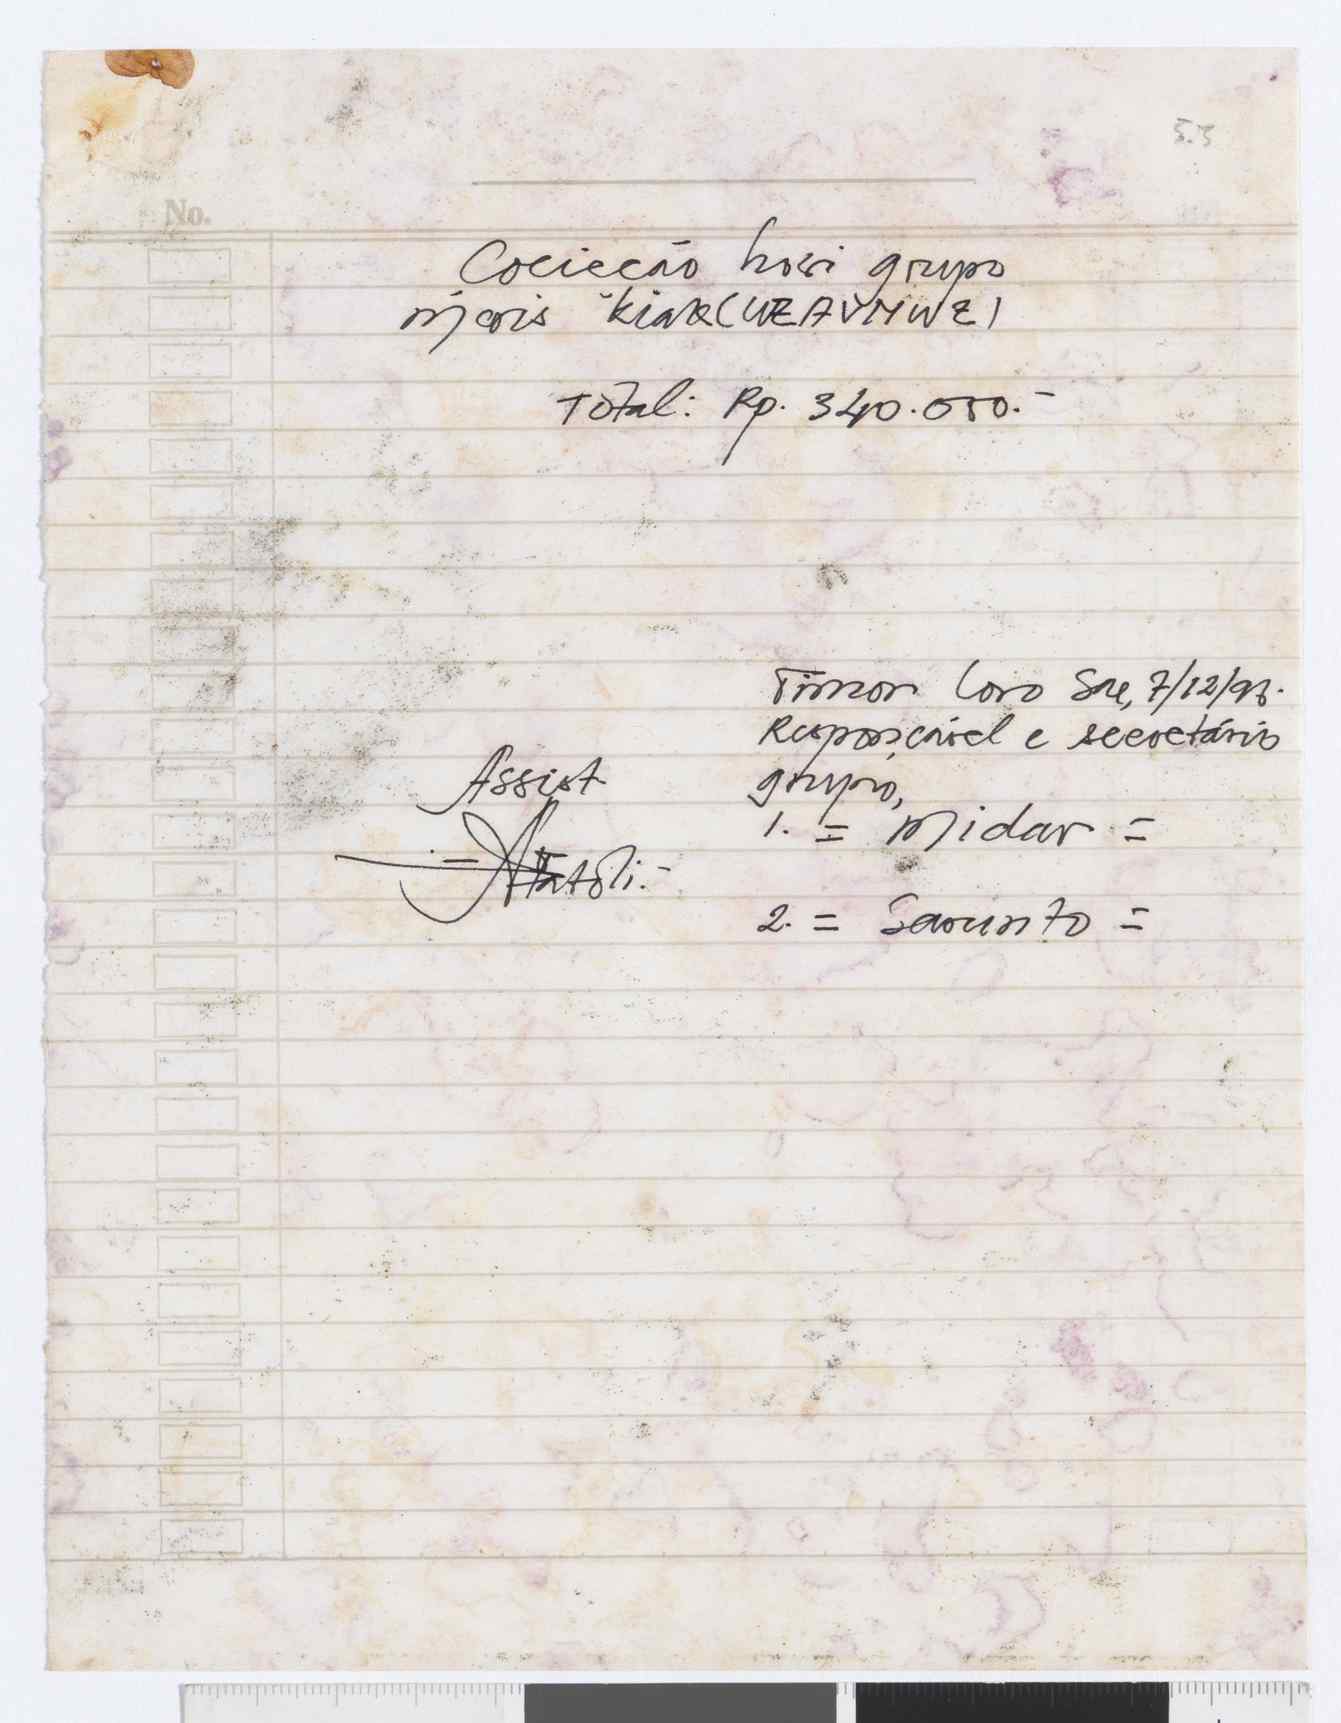 5.5
No.
Colecção hosi grupo
Moris "kiak (WEAVMWE)
Total: Rp. 340.050.-
Timor Loro Sae, 7/12/98.
Responsável e secretário
grupo,
Assist
1. = Midar =
= Natoli.-
2. = Sarunto =